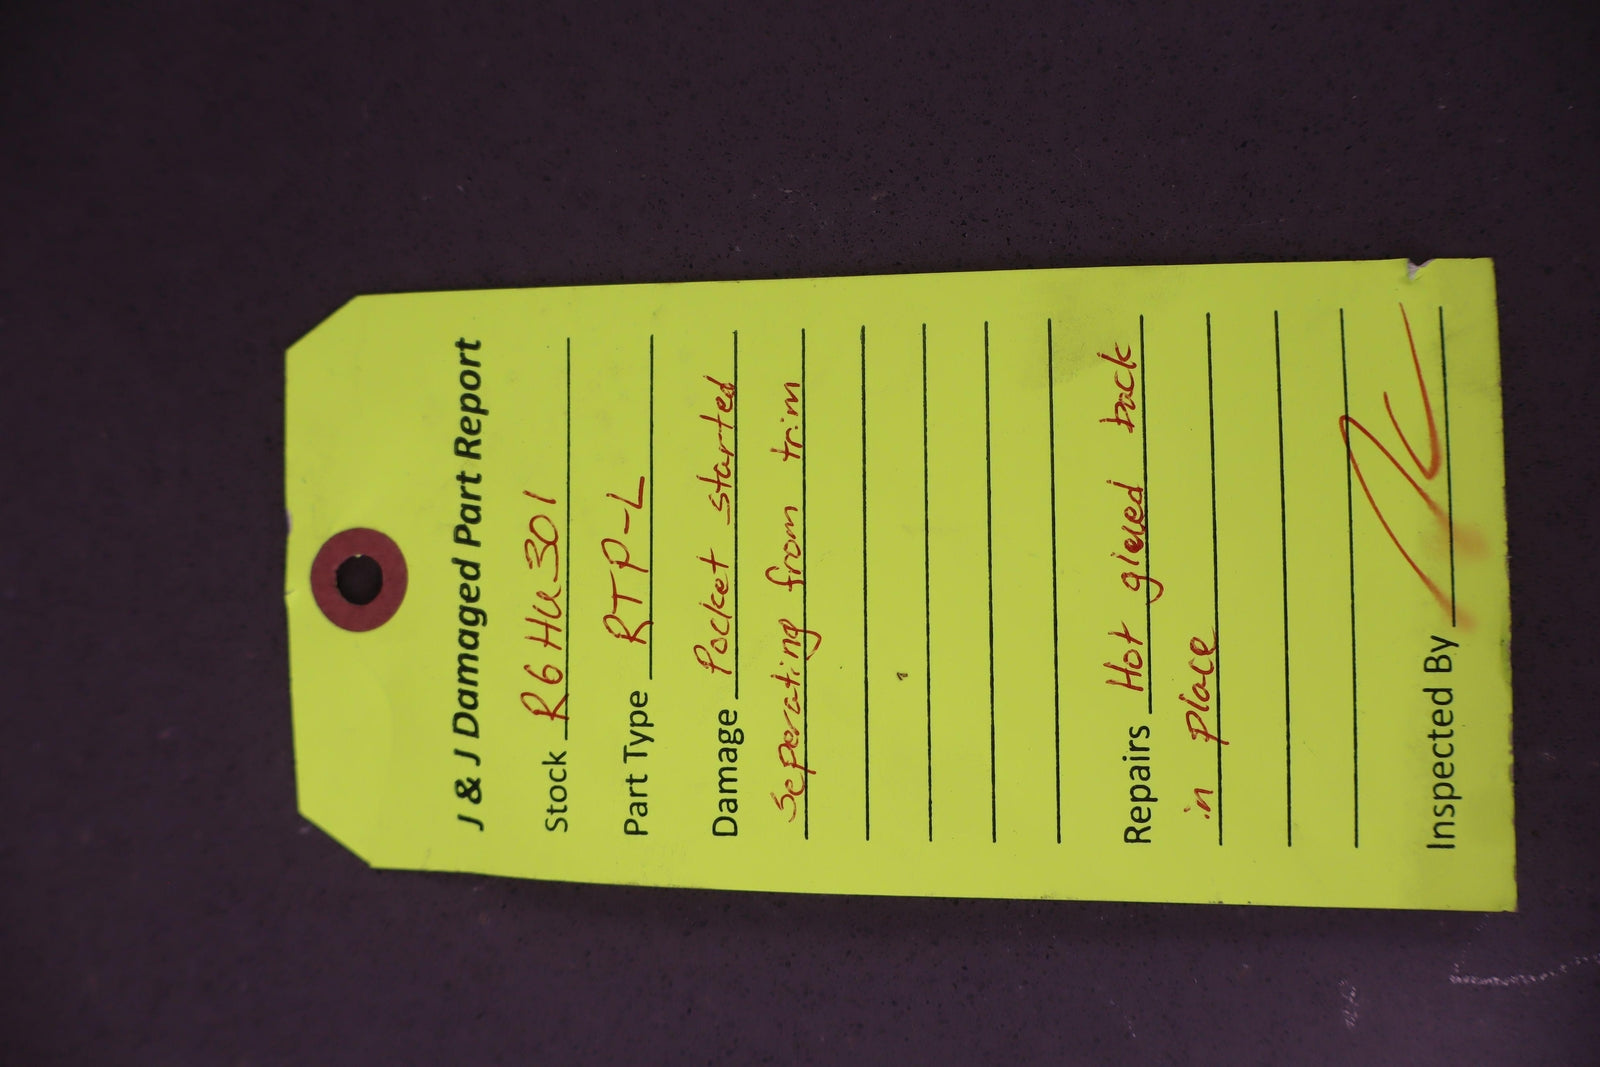 J & J Damaged Part Report
Stock R6HU301
Part Type RTP-L
Damage Pocket started
Seperating from trim
Repairs Hot glued back
in place
Inspected By